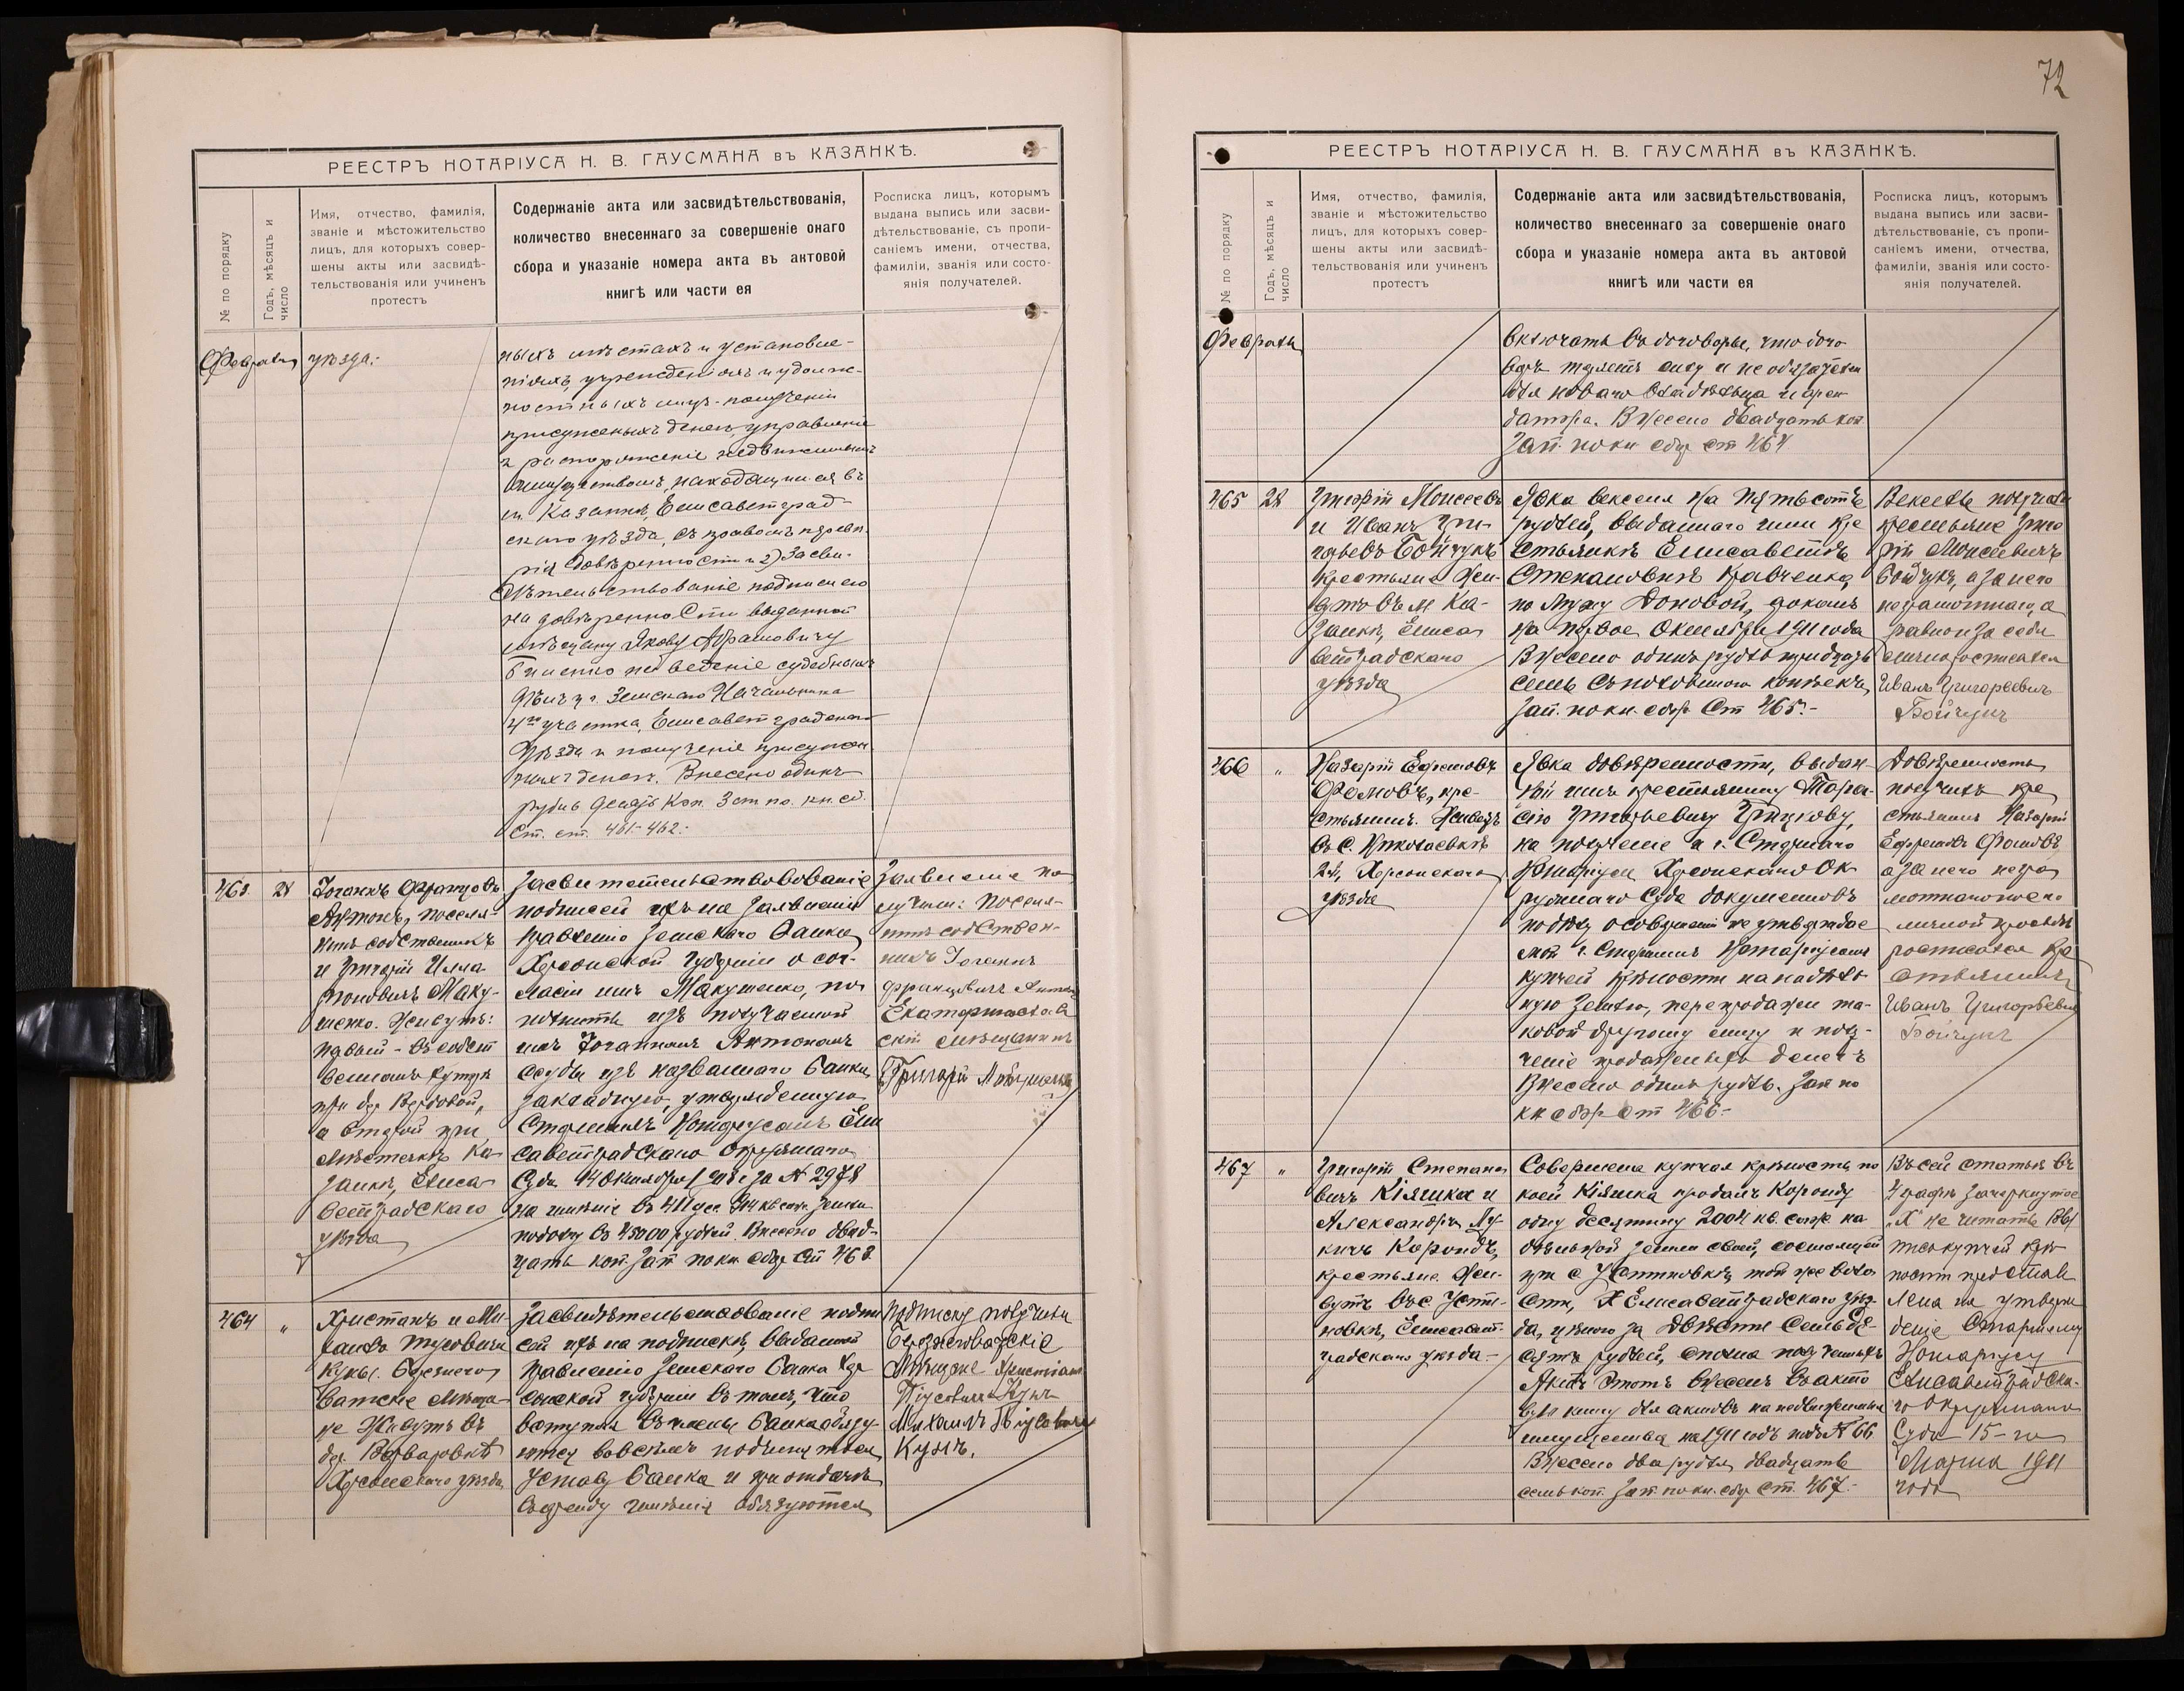 72
РЕЕСТРЪ НОТАРІУСА Н. В. ГАУСМАНА въ КАЗАНКѢ.
№ по порядку
Годъ, мѣсяцъ и
число
Имя, отчество, фамилія,
званіе и мѣстожительство
лицъ, для которыхъ совер-
шены акты или засвидѣ-
тельствованія или учиненъ
протестъ
Содержаніе акта или засвидѣтельствованія,
количество внесеннаго за совершеніе онаго
сбора и указаніе номера акта въ актовой
книгѣ или части ея
Росписка лицъ, которымъ
выдана выпись или засви-
дѣтельствованіе, съ пропи-
саніемъ имени, отчества,
фамиліи, званія или состо-
янія получателей.
Февраля
уѣзда.-
ныхъ мѣстахъ и установле-
ніяхъ, учрежденіяхъ и у долж-
ностныхъ лицъ - полученіи
присуженныхъ денегъ, управленіе
и распоряженіе недвижимымъ
имуществомъ, находящимся въ
м. Казанкѣ, Елисаветград-
скаго уѣзда, съ правомъ передо-
рія довѣренности и 2) Засви-
дѣтельствованіе подписи его
на довѣренности выданной
мѣщану Якову Абрамовичу
на веденіе судебныхъ
дѣлъ у г. Земскаго Начальника
4го участка, Елисаветградскаго
уѣзда и полученіе присужен-
ныхъ денегъ. Внесено одинъ
рубль десять коп. Зап. по. кн. сб.
ст. ст. 461-462.-
463.
28
Іоганнъ Францовъ
Антонъ, поселя-
нинъ собственникъ
и Григорій Илла-
ріоновичъ Маку-
шенко. Живутъ:
первый - въ собст
венномъ хуторѣ
при дер. Вербовой,
а второй при
мѣстечкѣ Ка-
занкѣ, Елиса-
ветградскаго
уѣзда
Засвитетельствовованіе
подписей ихъ на заявленіи
Правленію Земскаго Банка
Херсонской Губерніи о сог-
ласіи имъ Макушенко, по-
полнить изъ получаемой
имъ Іоганномъ Антономъ
ссуды изъ названнаго Банка
закладную, утвержденную
Старшимъ Нотаріусомъ Ели
саветградскаго Окружнаго
Суда 14 Октября 1908 г за № 2978
на имѣніе въ 411 дес. кв саж. земли
подогу въ 45000 рублей. Внесено двад-
цать коп. Зап по кн. сбор. Ст 463
Заявленіе по
лучили: Поселя-
нинъ собствен-
никъ Іоганнъ
Францовичъ Антонъ
Екатеринослав
скій мѣщанинъ
Григорій Макушенко
464
"
Христіанъ и Ми-
хаилъ Тусовичи
Кунцъ. Березнего
ватскіе мѣща-
не Живутъ въ
дер. Варваровкѣ
Херсонскаго уѣзда
Засвидѣтельствованіе подпи
сей ихъ на подпискѣ, выданной
Правленію Земскаго Банка Хер
сонской губерніи въ томъ, что
вступая въ члены Банка обязу-
ются во всемъ подчиняться
Уставу Банка и при отдачѣ
въ аренду имѣнія обязуются
Подписку получили
Березнеговатскіе
Мѣщане Христіанъ
Піусовичъ Кунъ
Михаилъ Піусовичъ
Кунъ.
РЕЕСТРЪ НОТАРІУСА Н. В. ГАУСМАНА въ КАЗАНКѢ.
№ по порядку
Годъ, мѣсяцъ и
число
Имя, отчество, фамилія,
званіе и мѣстожительство
лицъ, для которыхъ совер-
шены акты или засвидѣ-
тельствованія или учиненъ
протестъ
Содержаніе акта или засвидѣтельствованія,
количество внесеннаго за совершеніе онаго
сбора и указаніе номера акта въ актовой
книгѣ или части ея
Росписка лицъ, которымъ
выдана выпись или засви-
дѣтельствованіе, съ пропи-
саніемъ имени, отчества,
фамиліи, званія или состо-
янія получателей.
Февраля
включать въ договоры, что дого
воръ теряетъ силу и не обязателенъ
для новаго владѣльца и арен
датора. Внесено двадцать коп
Зап. по кн сбор ст 464
465
28
Григорій Моисеевъ
и Иванъ Гри-
горьевъ Бойчукъ
крестьяне Жи-
вутъ въ м. Ка-
занкѣ, Елиса
ветградскаго
уѣзда
Явка векселя на пятьсотъ
рублей, выданнаго ими кре
стьянкѣ Елисаветѣ
Степановнѣ Кравченко,
по мужу Доновой, срокомъ
на первое Октября 1911 года
Внесено одинъ рубль тридцать
семь съ половиною копѣекъ,
Зап. по кн. сбор. Ст 465.-
Вексель получили
крестьяне Григо
рій Моисеевичъ
Бойчукъ, а за него
неграмотнаго, а
равно и за себя
лично росписался
Иванъ Григорьевичъ
Бойчукъ
466
"
Назарій Ефремовъ
Фомовъ, кре-
стьянинъ. Живетъ
въ с. Николаевкѣ
2й, Херсонскаго
уѣзда
Явка довѣренности, выдан-
ной имъ крестьянину Тара-
сію Григорьевичу Грицкову,
на полученіе а г. Старшаго
Нотаріуса Херсонскаго Ок
ружнаго Суда документовъ
подогу о совершеніи не утверждае
мой г. Старшимъ Нотаріусомъ
купчей крѣпости на надѣль-
ную землю, перепродажи та-
ковой другому лицу и полу-
ченіе продажныхъ денегъ
Внесено одинъ рубль. Зап по
кн сбор ст 466-
Довѣренность
получилъ кре
стьянинъ Назарій
Ефремовъ Фомовъ
а за него негра
мотнаго по его
личной просьбѣ
росписался кре
стьянинъ
Иванъ Григорьевичъ
Бойчукъ
467
"
Григорій Степано
вичъ Кіяшка и
Александръ Лу-
кичъ Корондъ,
крестьяне. Жи-
вутъ въ с Усти-
новкѣ, Елисавет-
градскаго уѣзда.-
Совершена купчая крѣпость по
коей Кіяшка продалъ Коронду
одну десятину 2004 кв. саж на
дѣльной земли своей, состоящей
при с Устиновкѣ, той же волос
сти, Х Елисаветградскаго уѣз-
да, цѣною за двѣсти семьдѣ-
сятъ рублей, сполна полученныхъ
Актъ этотъ внесенъ въ акто
вую книгу для актовъ на недвижимыя
имущества на 1911 годъ подъ № 66
Внесено два рубля двадцать
семь коп. Зап. по кн. сбор ст. 467.-
Въ сей статьѣ въ
4 графѣ зачеркнутое
„Х" не читать. Вы
пись купчей крѣ
пости представ
лена на утверж
деніе Старшему
Нотаріусу
Елисаветградска-
го Окружнаго
Суда 15-го
Марта 1911
года